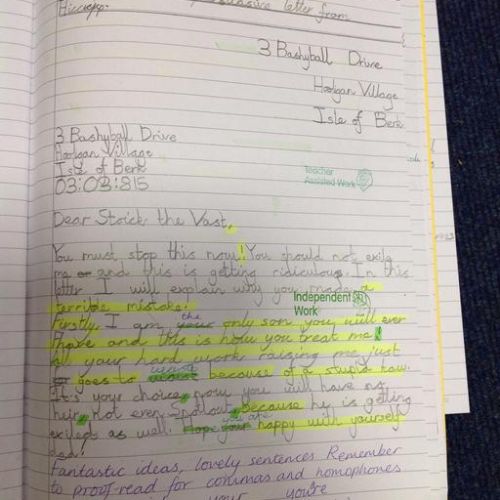 letter from
Hiccup.
3 Bashyball Drive
Hooligan Village
Isle of Berk
3 Bashyball Drive
Hooligan Village
Isle of Berk
03:03:815
Teacher
Assisted Work
Dear Stoick the Vast,
You must stop this now! You should not exile
me or and this is getting ridiculous. In this
letter I will explain why you made a
terrible mistake.
Independent
Work
Firstly I am the your only son you will ever
have and this is how you treat me!
All your hard work raising me just
goes to because of a stupid law.
It's your choice, now you will have no
heir, not even Snotlout, because he is getting
exiled as well. Hope your you are happy with yourself
dad!
Fantastic ideas, lovely sentences. Remember
to proof-read for commas and homophones
your you're